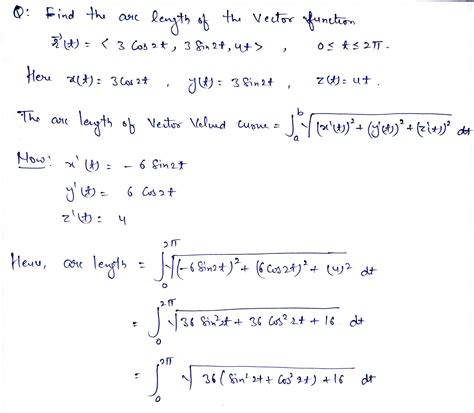 Q: Find the arc length of the Vector function
r⃗(t) = < 3 Cos2t, 3 Sin2t, 4t > , 0 ≤ t ≤ 2π.
Here x(t) = 3 Cos2t , y(t) = 3 Sin2t , z(t) = 4t.
The arc length of Vector Valued curve = ∫_a^b √((x'(t))² + (y'(t))² + (z'(t))²) dt
Now: x'(t) = - 6 Sin2t
y'(t) = 6 Cos2t
z'(t) = 4
Hence, arc length = ∫_0^{2π} √((-6 Sin2t)² + (6 Cos2t)² + (4)²) dt
= ∫_0^{2π} √(36 Sin²2t + 36 Cos²2t + 16) dt
= ∫_0^{2π} √(36 (Sin²2t + Cos²2t) + 16) dt